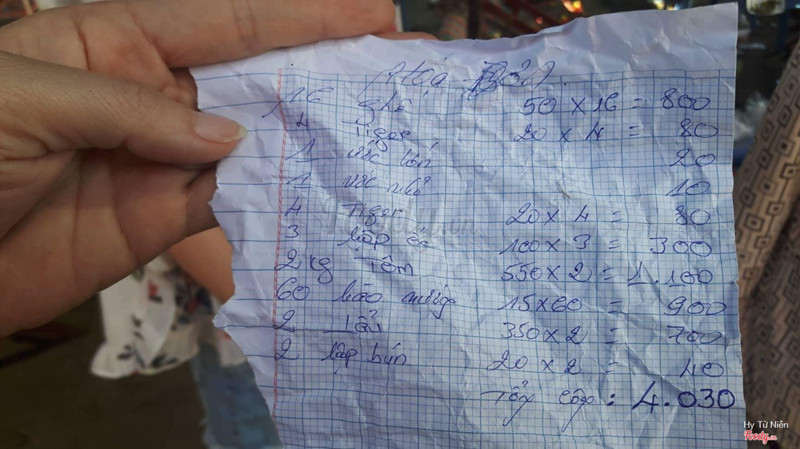 Hóa Đơn
16 ghế 50 x 16 = 800
4 Tiger 20 x 4 = 80
1 20
1 nhỏ 10
4 Tiger 20 x 4 = 80
3 100 x 3 = 300
2 kg Tôm 550 x 2 = 1.100
60 hào nướng 15 x 60 = 900
2 Lẩu 350 x 2 = 700
2 bún 20 x 2 = 40
Tổng cộng : 4.030
Hy Tử Niên
Foody.vn